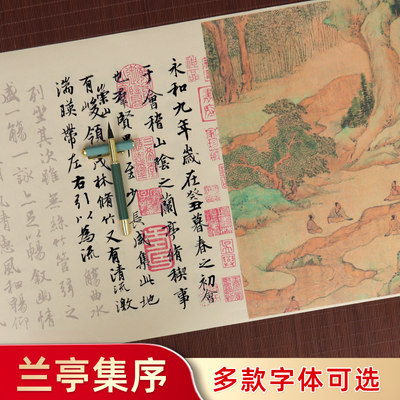 永和九年歲在癸丑暮春之初會
于會稽山陰之蘭亭脩稧事
也羣賢畢至少長咸集此地
有崇山峻領茂林脩竹又有清流激
湍暎帶左右引以為流
觴曲水
列坐其次雖無絲竹管弦之
盛一觴一詠上足以暢敘幽情
清惠風和暢仰
兰亭集序
多款字体可选